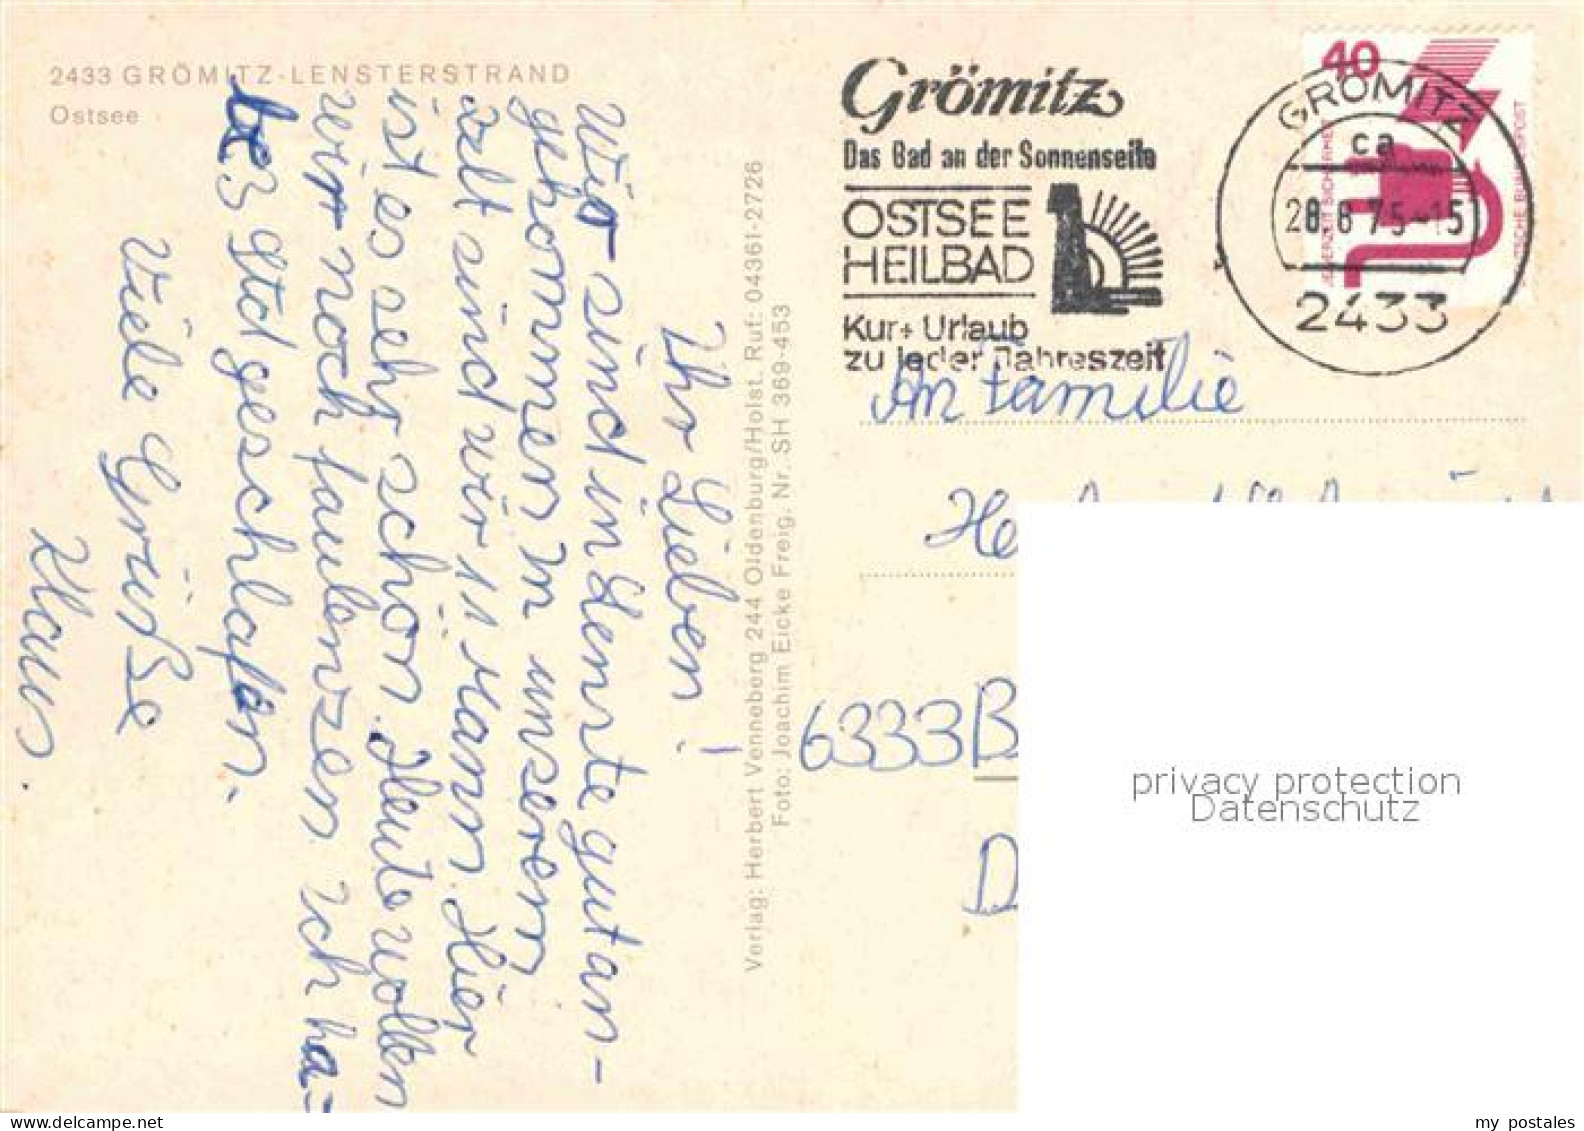 2433 GRÖMITZ-LENSTERSTRAND
Ostsee
Ihr Lieben!
Wir sind in Lenste gut an-
gekommen. In unserem
Zelt sind wir 11 Mann. Hier
ist es sehr schön. Heute wollen
wir noch faulenzen. Ich ha-
be 3 Std geschlafen.
Viele Grüße
Klaus.
Verlag: Herbert Venneberg 244 Oldenburg/Holst. Ruf: 04361-2726
Foto: Joachim Eicke Freig. Nr. SH 369-453
Grömitz
Das Bad an der Sonnenseite
OSTSEE
HEILBAD
Kur+Urlaub
zu jeder Jahreszeit
40
JEDERZEIT SICHERHEIT
DEUTSCHE BUNDESPOST
GRÖMITZ
ca
28.8.75-15
2433
An Familie
6333 B
D
privacy protection
Datenschutz
my postales